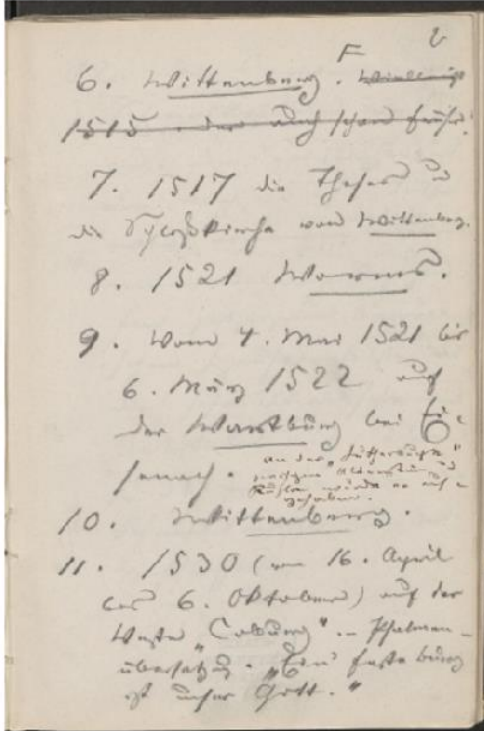 6. Wittenberg.
1515 oder auch schon früher.
7. 1517 die Thesen an
die Schloßkirche von Wittenberg.
8. 1521 Worms.
9. Vom 4. Mai 1521 bis
6. März 1522 auf
der Wartburg bei Ei-
senach. an der „Luthersbuche“
zwischen Altenstein und
wurde er auf-
gehoben.
10. Wittenberg.
11. 1530 (vom 16. April
bis 6. Oktober) auf der
Veste „Coburg“. – Psalmen-
übersetzung. „Ein feste burg
ist unser Gott.“